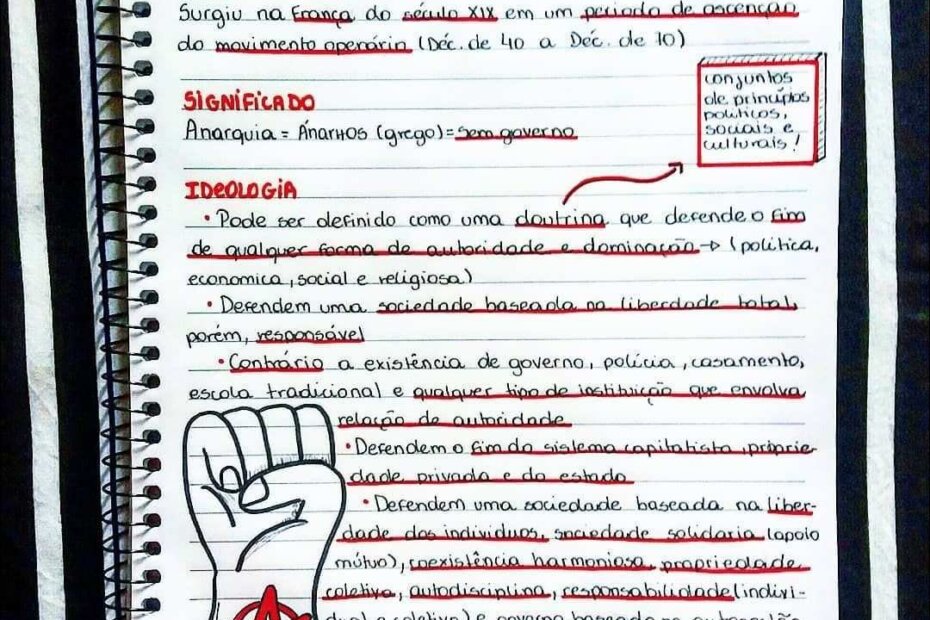 Surgiu na França do século XIX em um período de ascenção
do movimento operário (Déc. de 40 a Déc. de 70)
conjuntos
de princípios
políticos,
sociais e
culturais!
SIGNIFICADO
Anarquia = Ánarkos (grego) = sem governo
IDEOLOGIA
• Pode ser definido como uma doutrina que defende o fim
de qualquer forma de autoridade e dominação → (política,
economica, social e religiosa)
• Defendem uma sociedade baseada na liberdade total,
porém, responsável
• Contrário a existência de governo, polícia, casamento,
escola tradicional e qualquer tipo de instituição que envolva
relação de autoridade
• Defendem o fim do sistema capitalista, proprie
dade privada e do estado
• Defendem uma sociedade baseada na liber-
dade dos individuos, sociedade solidaria (apoio
mútuo), coexistência harmoniosa, propriedade
coletiva, autodisciplina, responsabilidade (indivi-
dual e coletiva) e governo baseado na